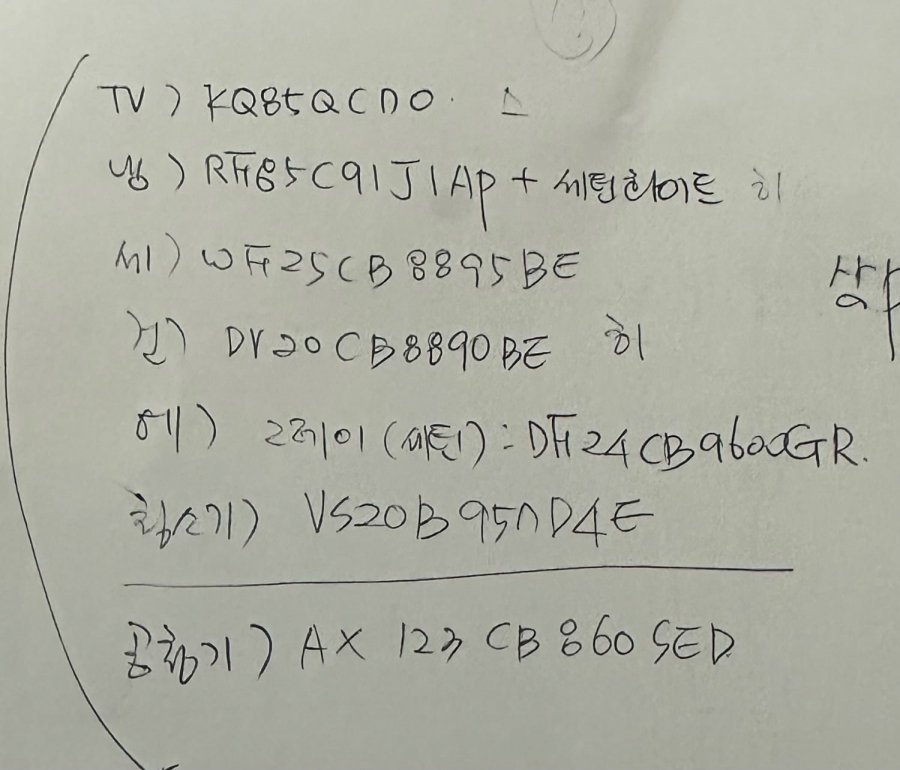 TV) KQ85QCD0. ㅗ
냉) RF85C91J1AP + 새턴화이트 히
세) WF25CB8895BE
건) DV20CB8890BE 히
에) 그레이(새틴) : DF24CB9600GR.
청소기) VS20B950D4E
공청기) AX123CB860SED